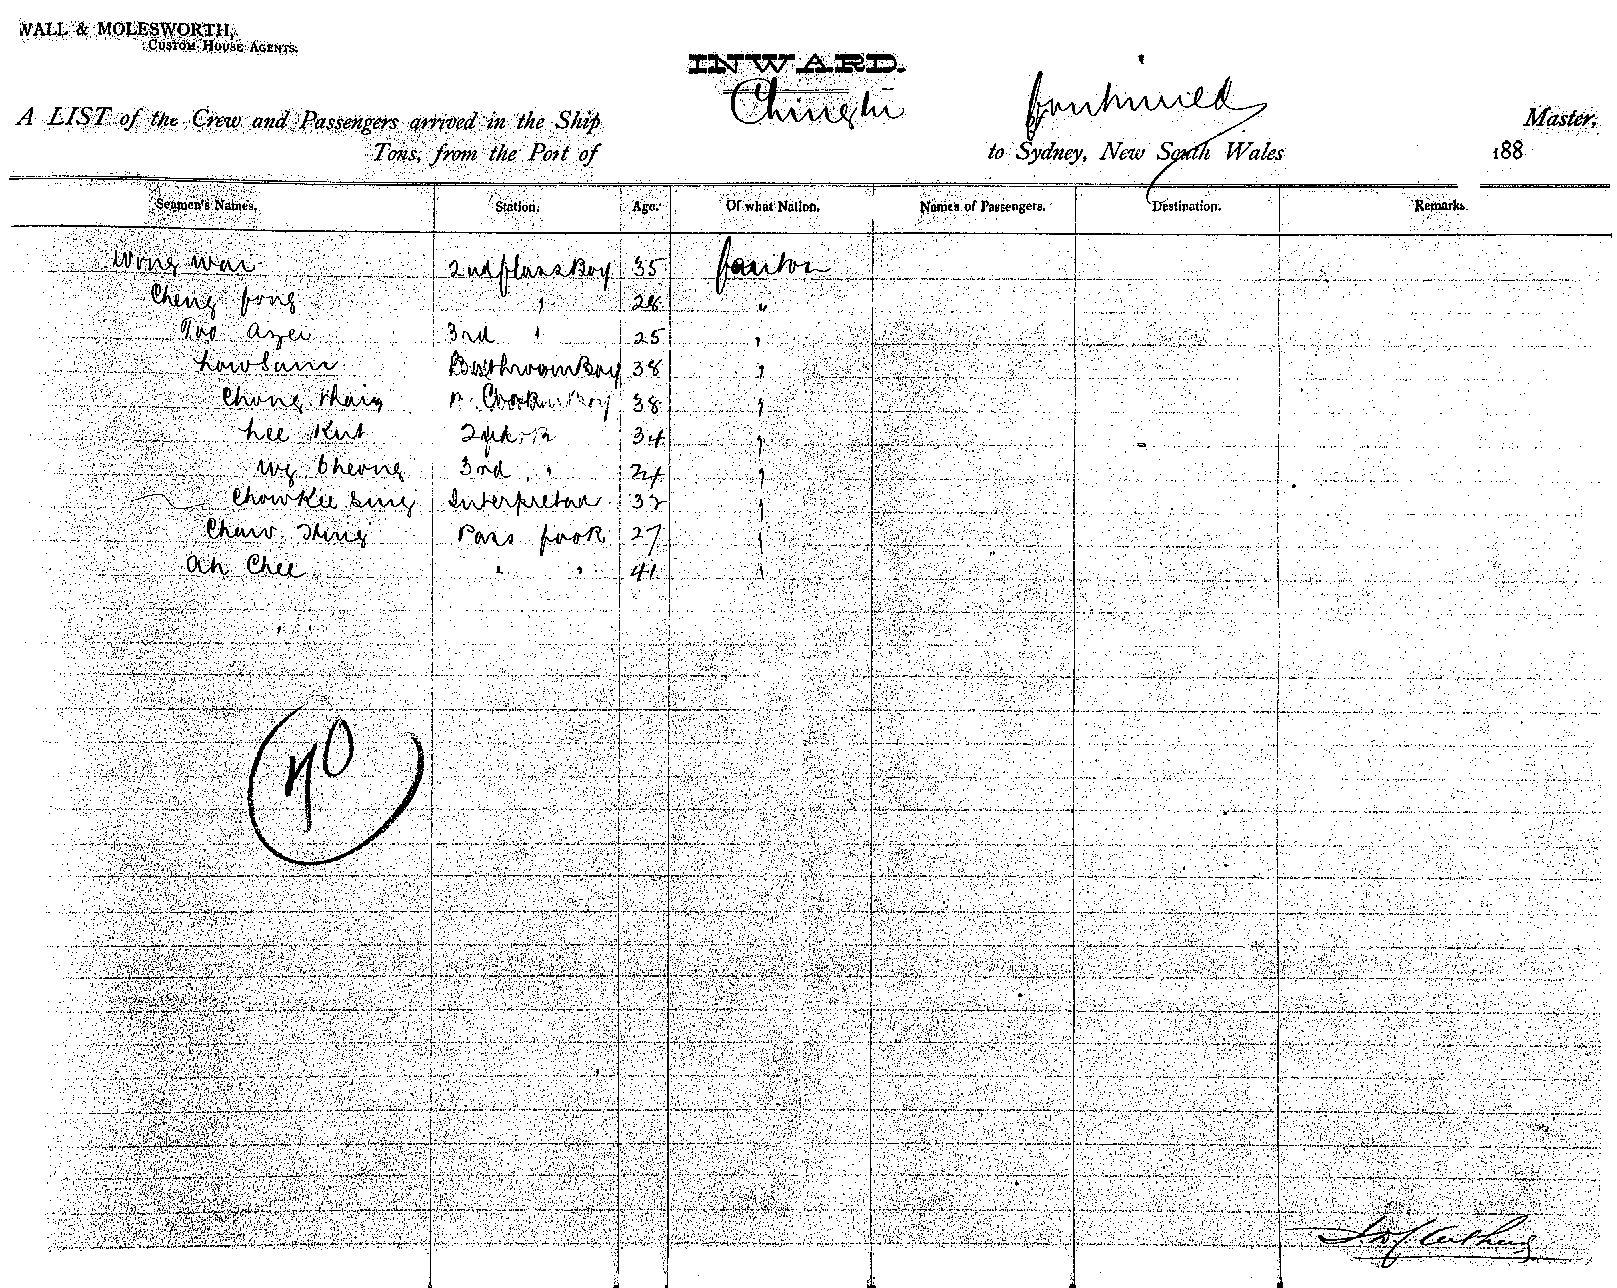 WALL & MOLESWORTH,
CUSTOM HOUSE AGENTS.
INWARD.
A LIST of the Crew and Passengers arrived in the Ship Chingtu Continued Master,
Tons, from the Port of to Sydney, New South Wales 188
Seamen's Names. Station. Age. Of what Nation. Names of Passengers. Destination. Remarks.
Wong Wai 2nd Class Boy 35 Canton
Cheng Fong " 28 "
25 "
3rd "
Low Sam Bathroom Boy 38 "
Chong 38 "
Lee Kut 34 "
Cheong 3rd " 24 "
Chow Kee Sing Interpreter 32 "
Chaw Pass Cook 27 "
Ah Chee " " 41 "
40